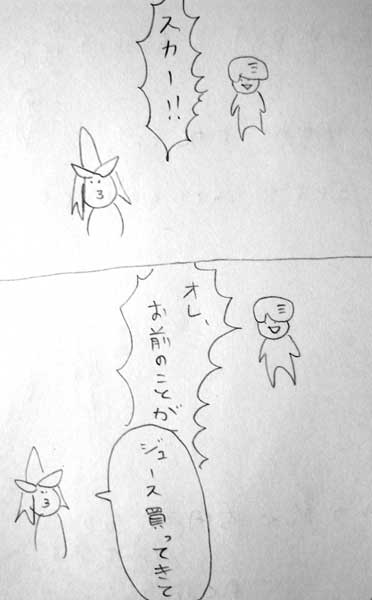 スカー!!
オレ、
お前のことが
ジュース買ってきて